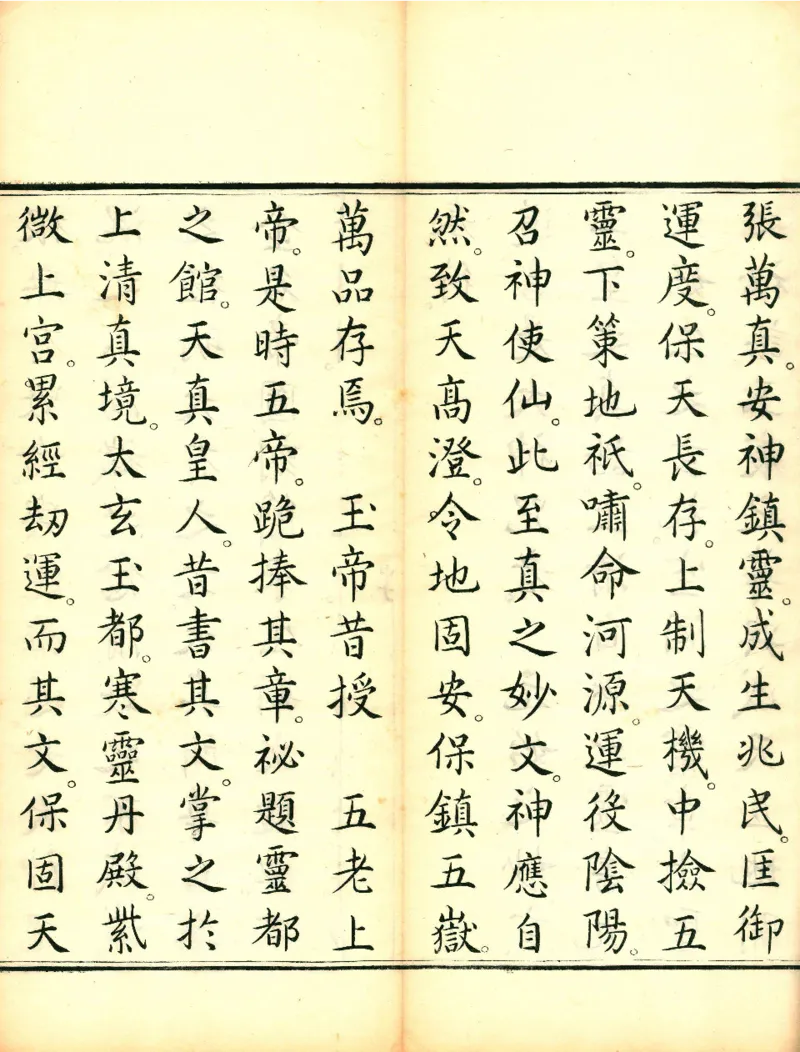 張萬真。安神鎮靈。成生兆民。匡御
運度。保天長存。上制天機。中撿五
靈。下策地祇。嘯命河源。運役陰陽。
召神使仙。此至真之妙文。神應自
然。致天高澄。令地固安。保鎮五嶽。
萬品存焉。　玉帝昔授　五老上
帝。是時五帝。跪捧其章。祕題靈都
之館。天真皇人。昔書其文。掌之於
上清真境。太玄玉都。寒靈丹殿。紫
微上宮。累經劫運。而其文。保固天